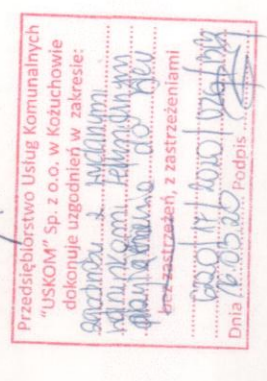 Przedsiębiorstwo Usług Komunalnych
"USKOM" Sp. z o.o. w Kożuchowie
dokonuje uzgodnień w zakresie:
zgodnie z wydanymi
warunkami technicznymi
do
bez zastrzeżeń, z zastrzeżeniami
Dnia 16.03.20 Podpis